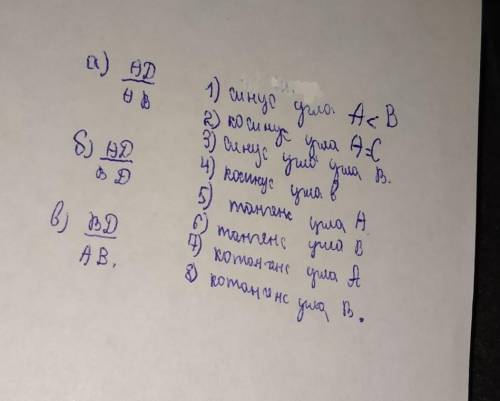 а) AD
AB
б) AD
BD
в) BD
AB.
1) синус угла A < B
2) косинус угла A = C
3) синус угла угла B.
4) косинус угла B
5) тангенс угла A
6) тангенс угла B
7) котангенс угла A
8) котангенс угла B.